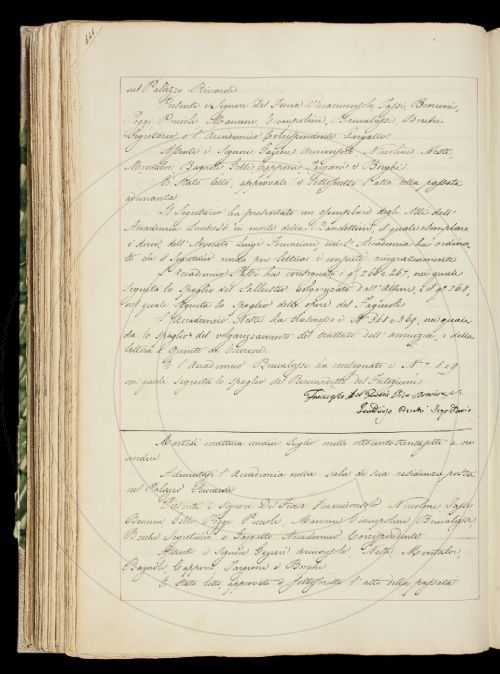 nel Palazzo Riccardi
Presenti i Signori Del Furia Vicearciconsolo, Tassi, Bencini,
Poggi Puccoli Manuzzi Ciampolini, e Brucalassi Becchi
Segretario e l'Accademico Corrispondente Gargallo.
Assenti i Signori Gazzeri Arciconsolo Niccolini Nesti,
Montalvi, Bagnoli Gelli Capponi Targioni e Borghi.
È stato letto, approvato e sottoscritto l'atto della passata
adunanza
Il Segretario ha presentato un esemplare degli Atti dell'
Accademia Lucchese in morte della Bandettini, il quale esemplare
è dono dell'Avvocato Luigi Fornaciari, cui l'Accademia ha ordina
to che il Segretario renda per lettera i consueti ringraziamenti
L'Accademico ha consegnati i q.i 266 e 267, nei quale
seguita lo spoglio del Sallustio volgarizzato dall'Alfieri, e il q.o 268,
nel quale seguita lo spoglio delle opere del Fagiuoli
L'Accademico Nesti ha trasmesso i N.i 368 e 369, ne quale
da lo spoglio del volgarizzamento del trattato dell'amicizia, e della
lettera a Quinto di Cicerone.
E l'Accademico Brucalassi ha consegnato i N.i 7. 8. e 9
nei quale seguita lo spoglio del Ricciardetto del Forteguerri
Francesco Del Furia Vice Arciconsolo
Fruttuoso Becchi Segretario
Martedì mattina undici Luglio mille ottocento trentasette a ore
undici
Adunatasi l'Accademia nella sala di sua residenza posta
nel Palazzo Riccardi
Presenti i Signori Del Furia Vicearciconsolo Niccolini Tassi
Bencini Gelli Poggi Puccoli, Manuzzi Ciampolini Brucalassi
Becchi Segretario e Gargallo Accademico Corrispondente
Assenti i Signori Gazzeri Arciconsolo, Nesti, Montalvi
Bagnoli, Capponi, Targioni e Borghi
È stato letto, approvato e sottoscritto l'atto della passata